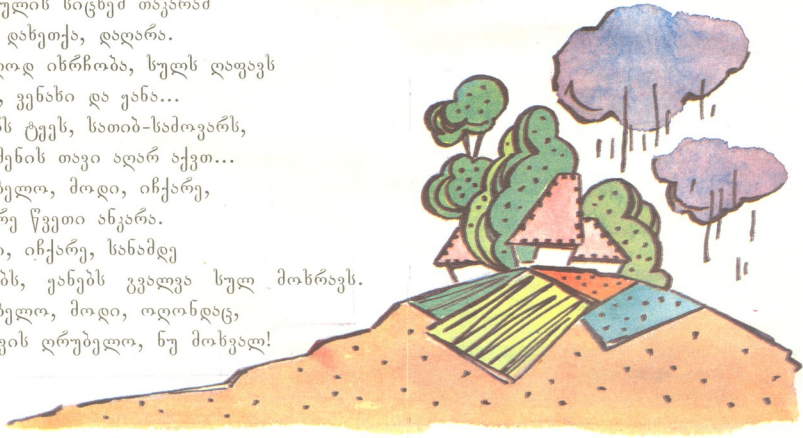 სიცხემ თაკარამ
დახეთქა, დაღარა.
იხრჩობა, სულს ღაფავს
ვენახი და ყანა...
ტყეს, სათიბ-საძოვარს,
თავი აღარ აქვთ...
მოდი, იჩქარე,
წვეთი ანკარა.
იჩქარე, სანამდე
ყანებს გვალვა სულ მოხრავს.
მოდი, ოღონდაც,
ღრუბელო, ნუ მოხვალ!